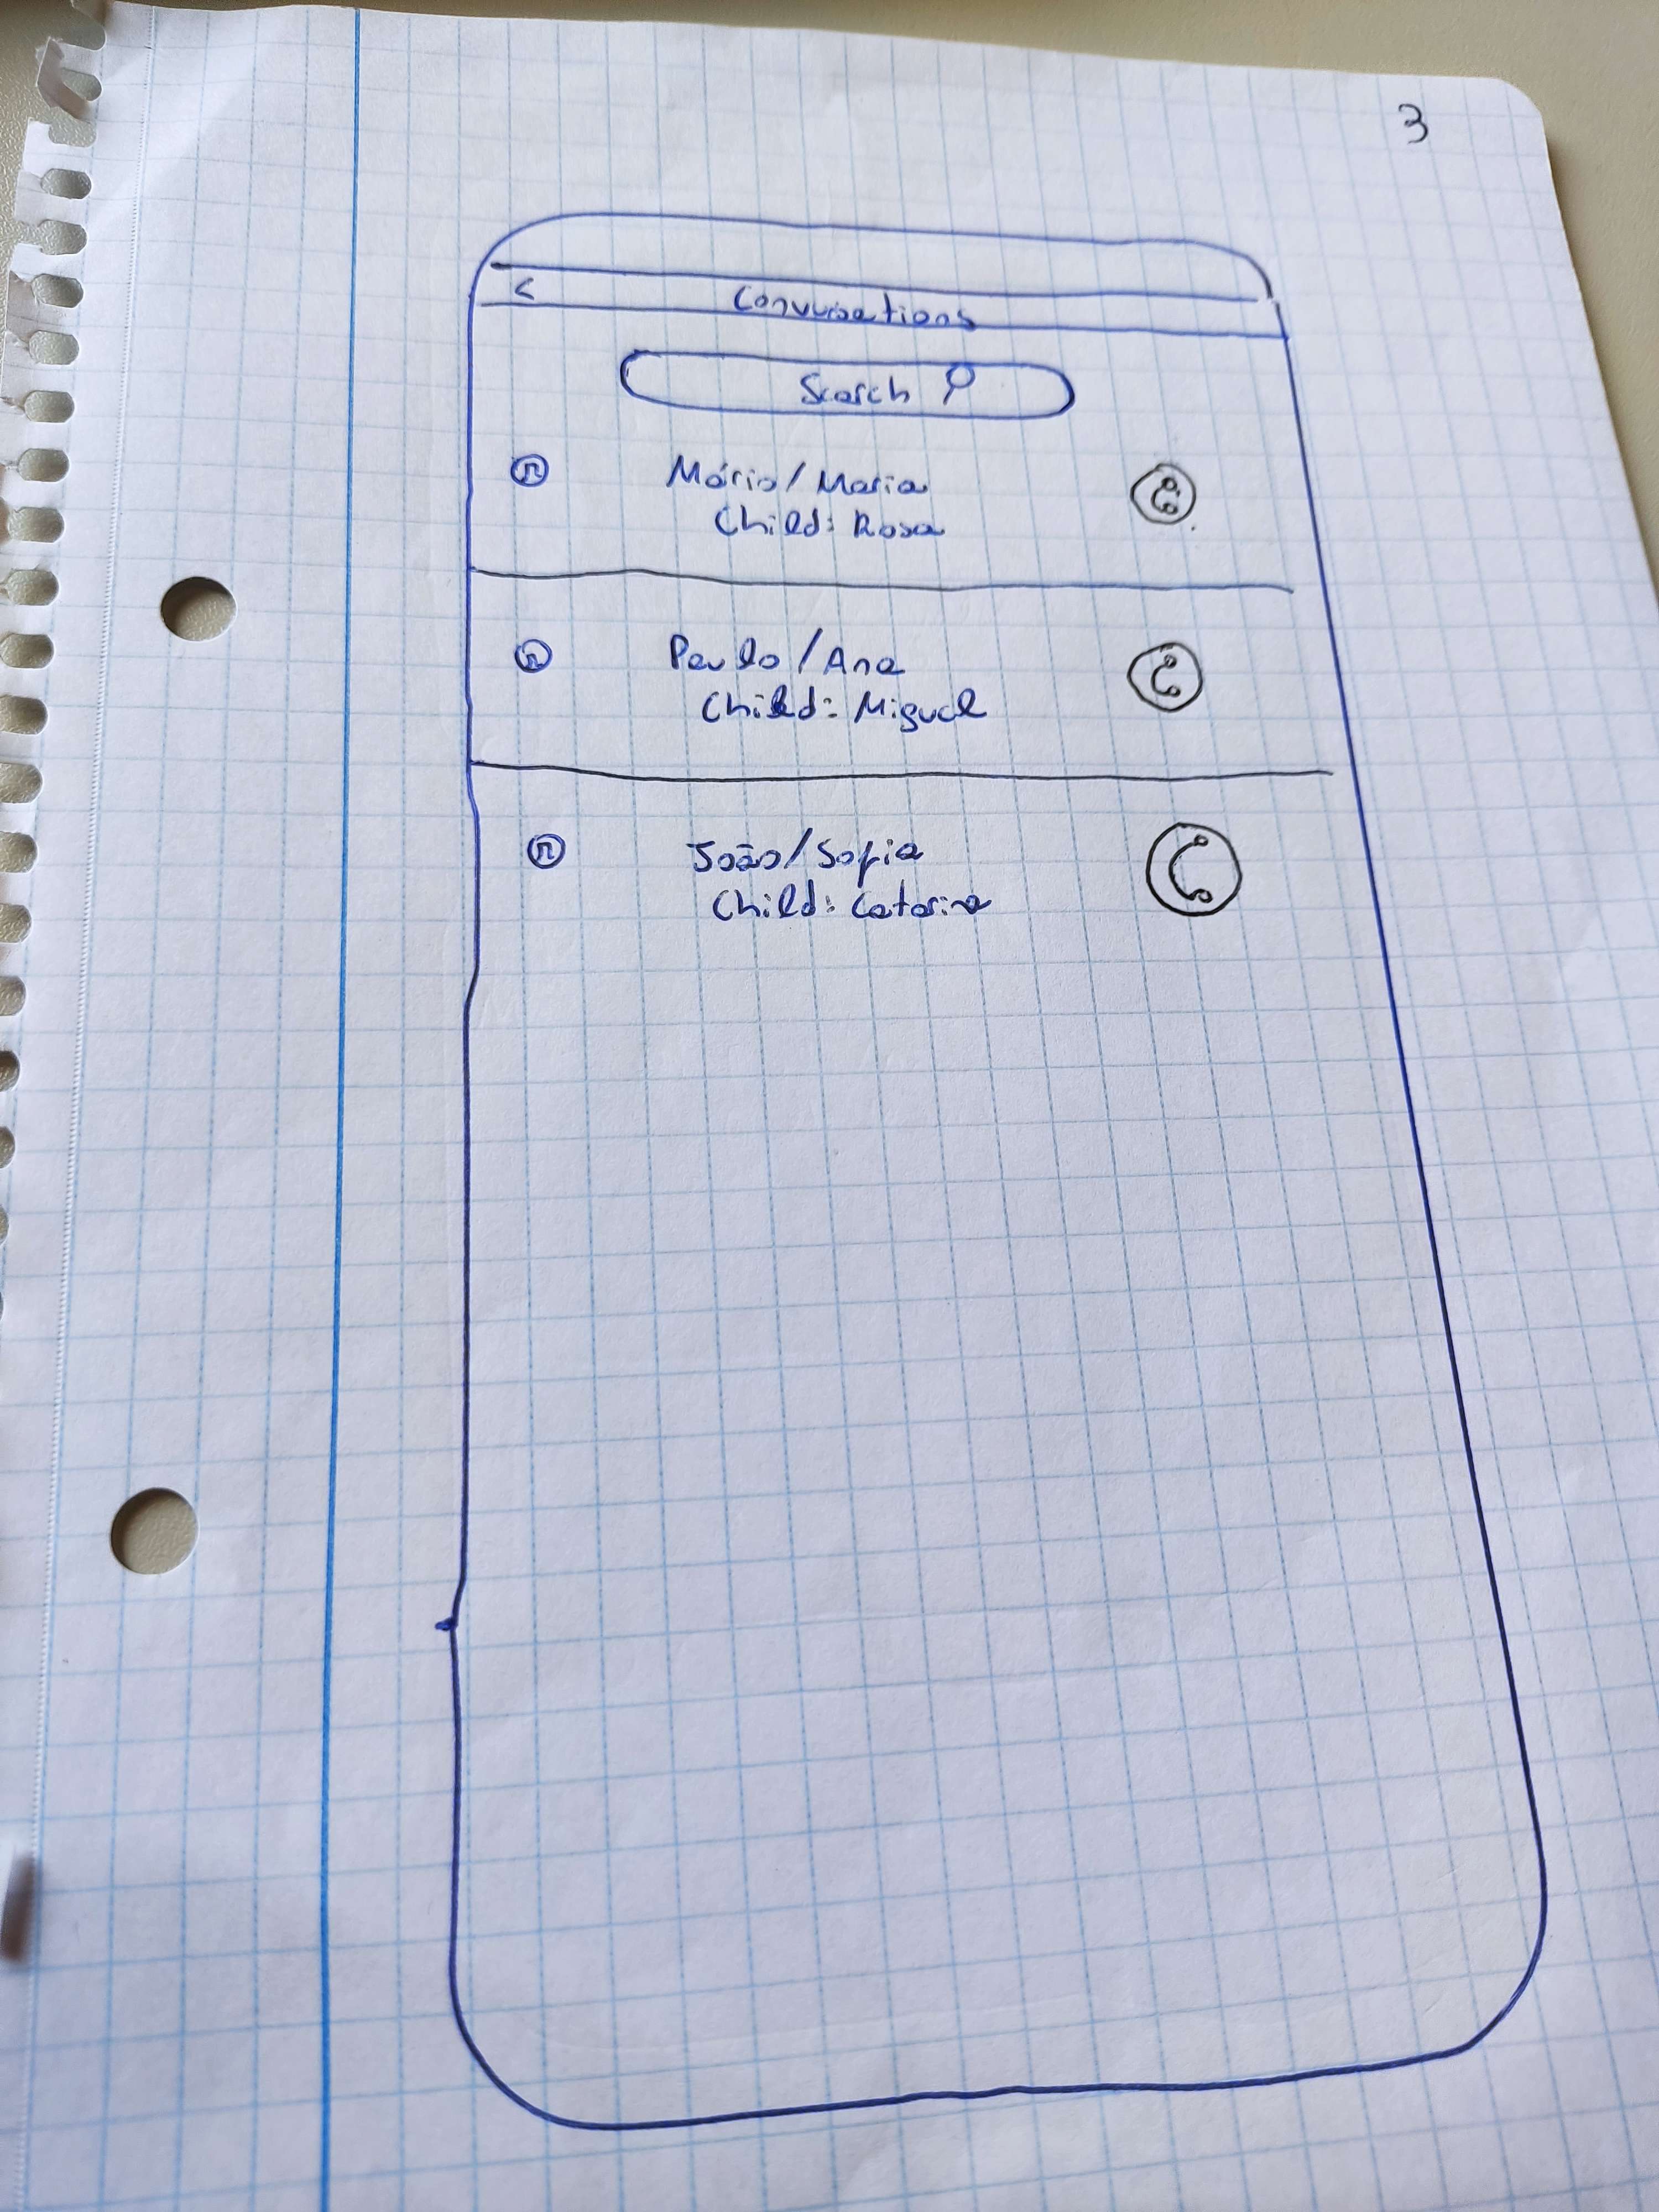 3
<
Conversations
Search
Mário/Maria
Child: Rosa
Paulo/Ana
Child: Miguel
João/Sofia
Child: Catarina